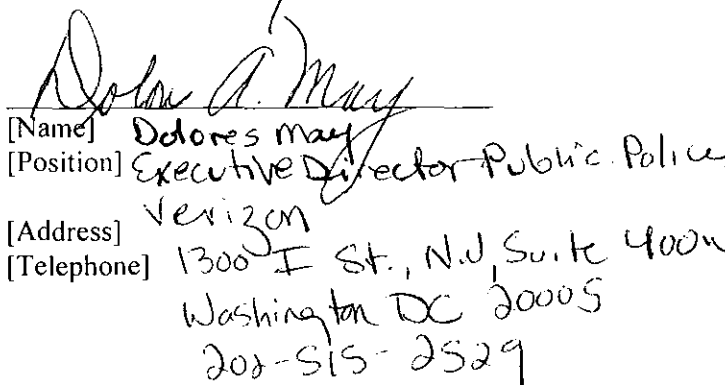 Dolores A. May
[Name] Dolores May
[Position] Executive Director Public Policy
Verizon
[Address]
[Telephone] 1300 I St., N.W, Suite 400W
Washington DC 20005
202-515-2529